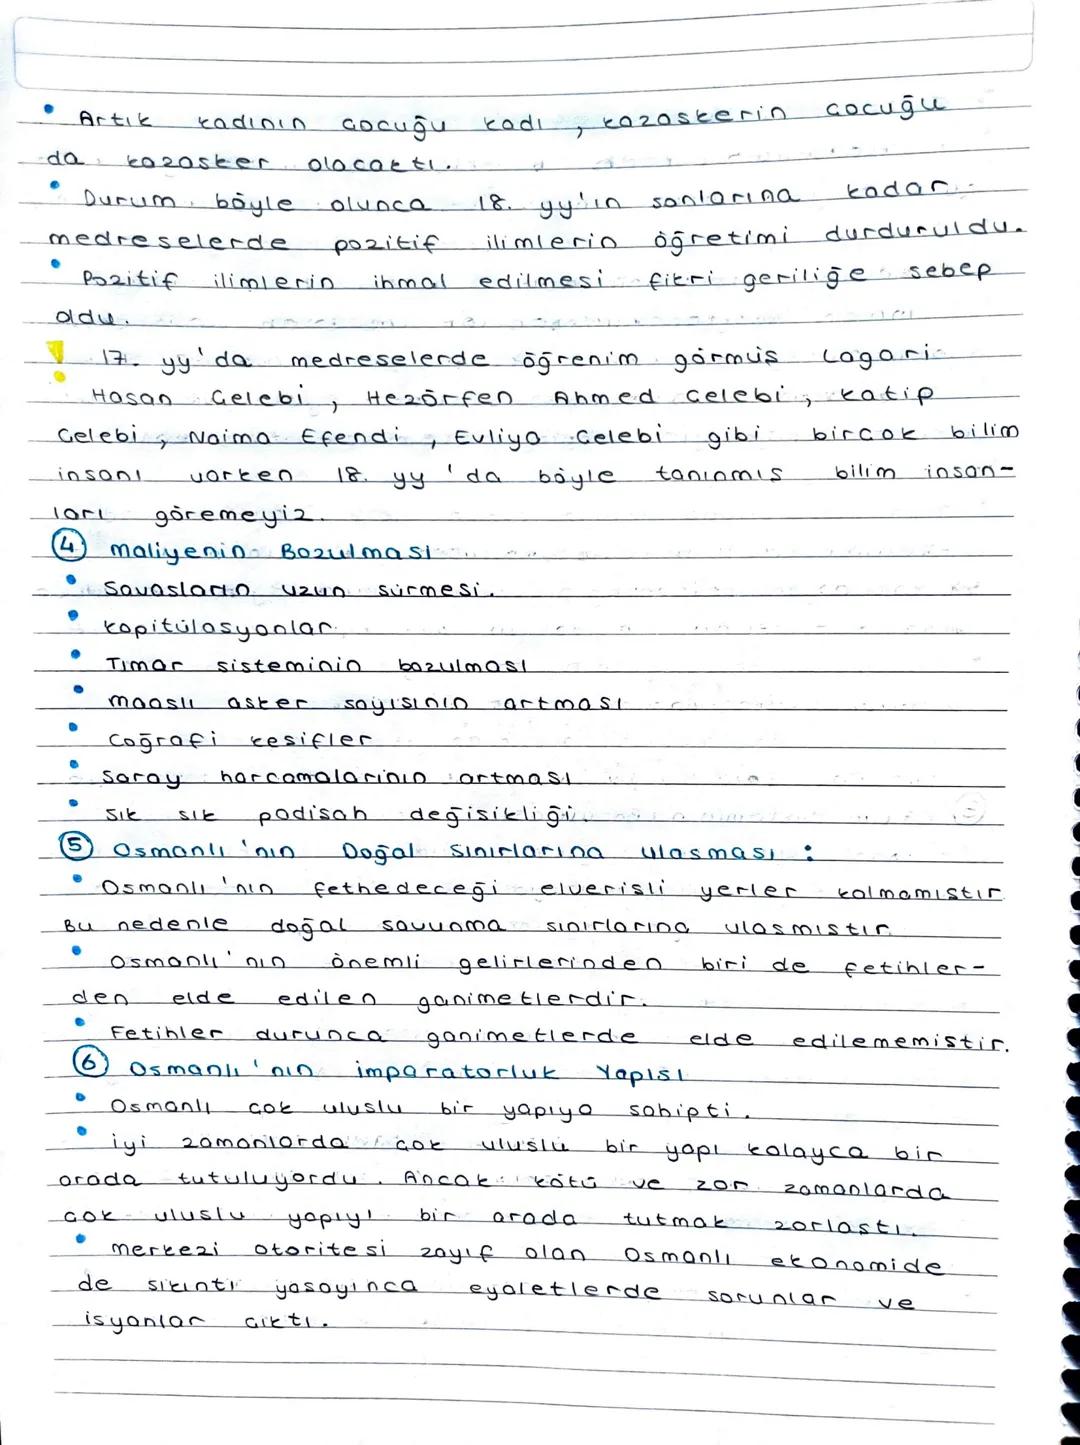 • Artık kadının çocuğu kadı, kazaskerin çocuğu
da kazasker olacaktı.
• Durum böyle olunca 18. yy'ın sonlarına kadar
medreselerde pozitif ilimlerin öğretimi durduruldu.
• Pozitif ilimlerin ihmal edilmesi fikri geriliğe sebep
oldu.
! 17. yy'da medreselerde öğrenim görmüş Lagari
Hasan Çelebi, Hezörfen Ahmed Çelebi, Katip
Çelebi, Naima Efendi, Evliya Çelebi gibi birçok bilim
insanı varken 18. yy'da böyle tanınmış bilim insan-
ları göremeyiz.
④ Maliyenin Bozulması
• Savaşların uzun sürmesi.
• Kapitülasyonlar
• Tımar sisteminin bozulması
• Maaşlı asker sayısının artması
• Coğrafi keşifler
• Saray harcamalarının artması
• Sık sık padişah değişikliği
⑤ Osmanlı'nın Doğal Sınırlarına Ulaşması :
• Osmanlı'nın fethedeceği elverişli yerler kalmamıştır
Bu nedenle doğal savunma sınırlarına ulaşmıştır.
• Osmanlı'nın önemli gelirlerinden biri de fetihler-
den elde edilen ganimetlerdir.
• Fetihler durunca ganimetlerde elde edilememiştir.
⑥ Osmanlı'nın İmparatorluk Yapısı
• Osmanlı çok uluslu bir yapıya sahipti.
• İyi zamanlarda çok uluslu bir yapı kolayca bir
arada tutuluyordu. Ancak kötü ve zor zamanlarda
çok uluslu yapıyı bir arada tutmak zorlaştı.
• Merkezi otoritesi zayıf olan Osmanlı ekonomide
de sıkıntı yaşayınca eyaletlerde sorunlar ve
isyanlar çıktı.